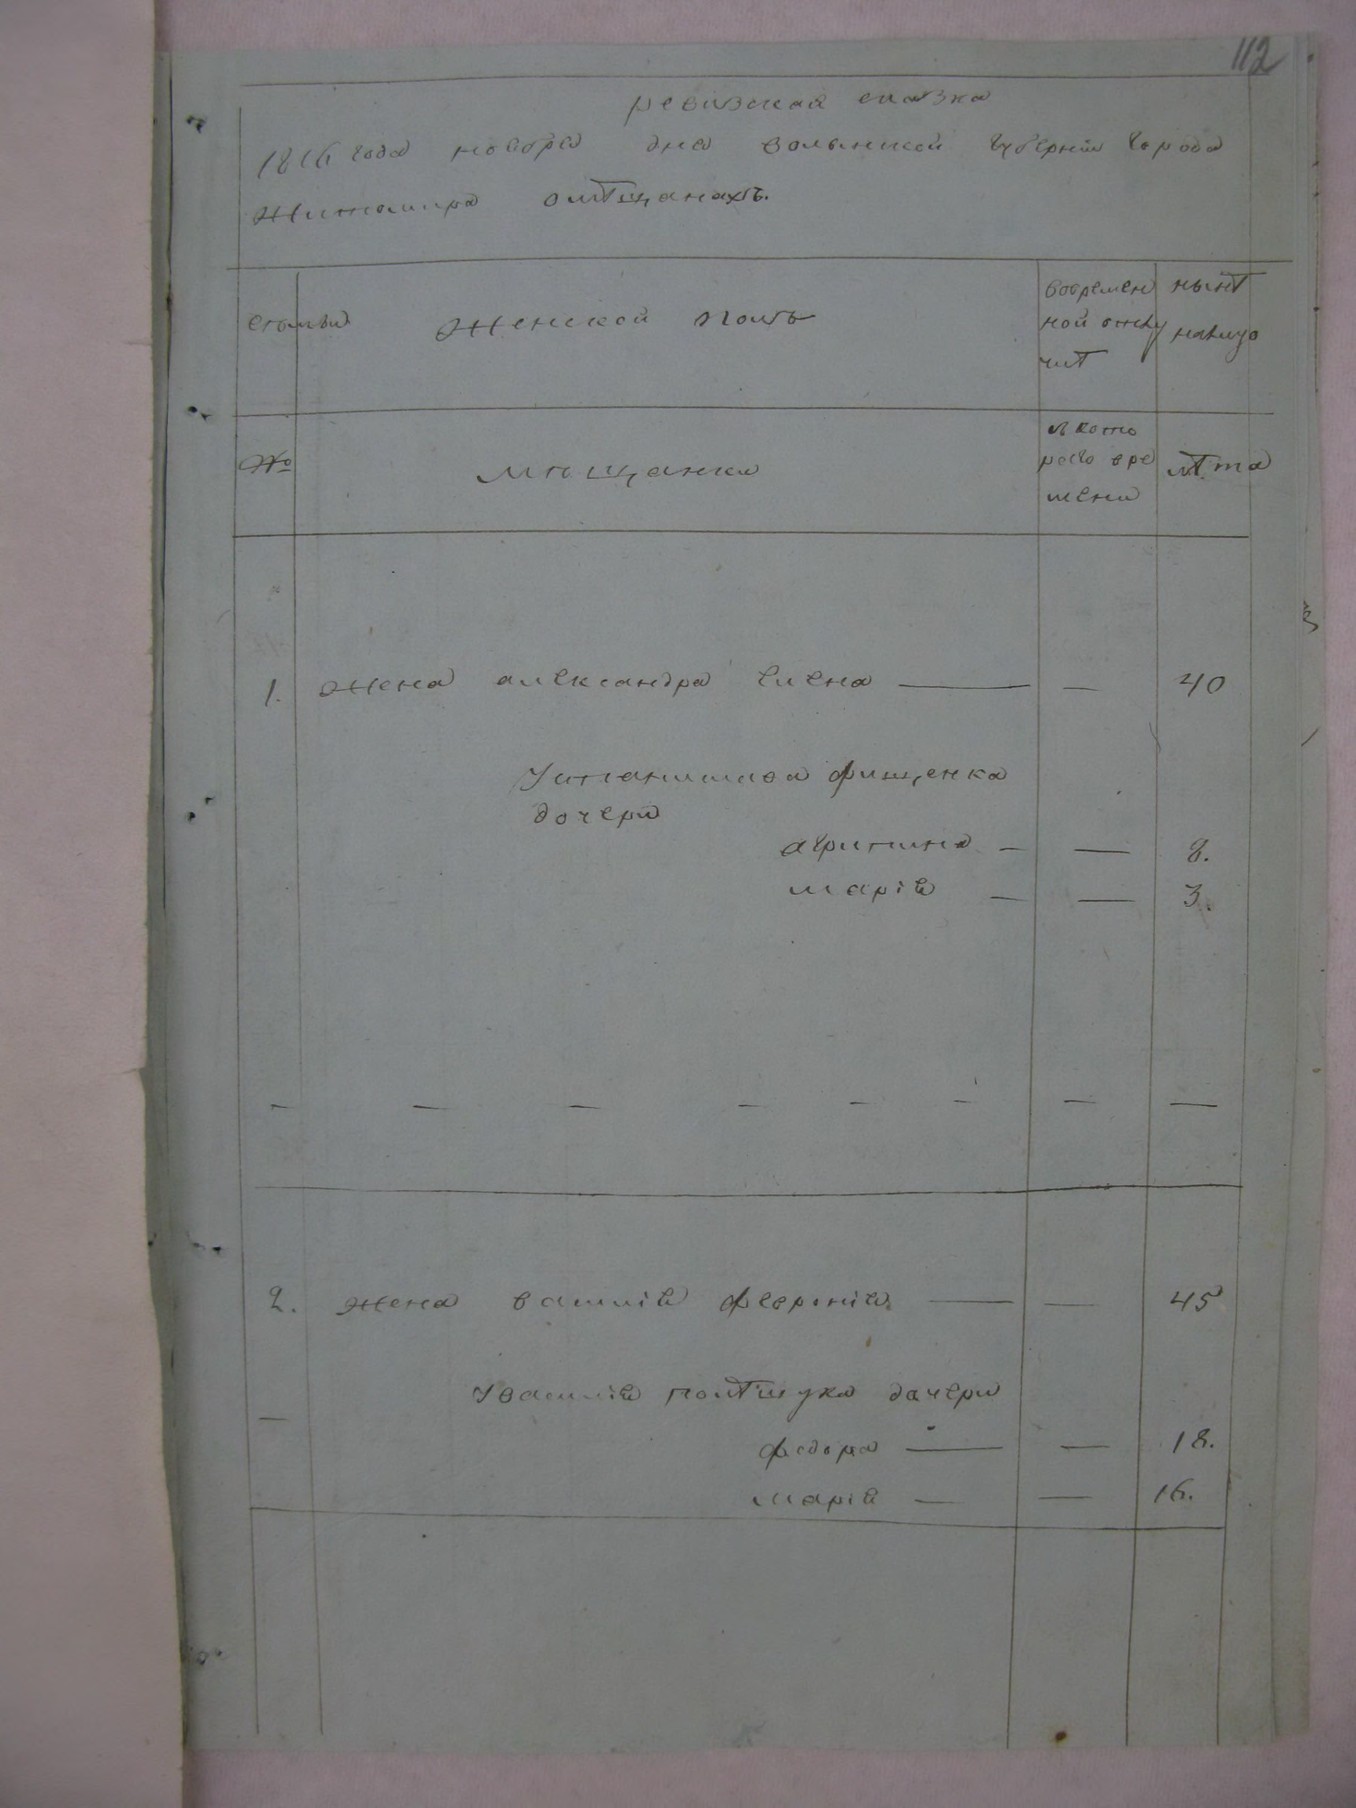 112
ревизская сказка
1816 года ноября дня волынской губернїи города
Житомира омѣщанахъ.
семьи
Женской полъ
вовремен
ной отлу
чкѣ
нынѣ
налицо
№
мѣщанка
съ кото
раго вре
мени
лѣта
1. жена александра Елена — — 40
Устанислава фищенка
дочери
агрипина — — 8.
марія — — 3.
— — — — — — — —
2. жена василія февронія — — 45
Увасилія полѣщука дочери
—
федора — — 18.
марія — — 16.